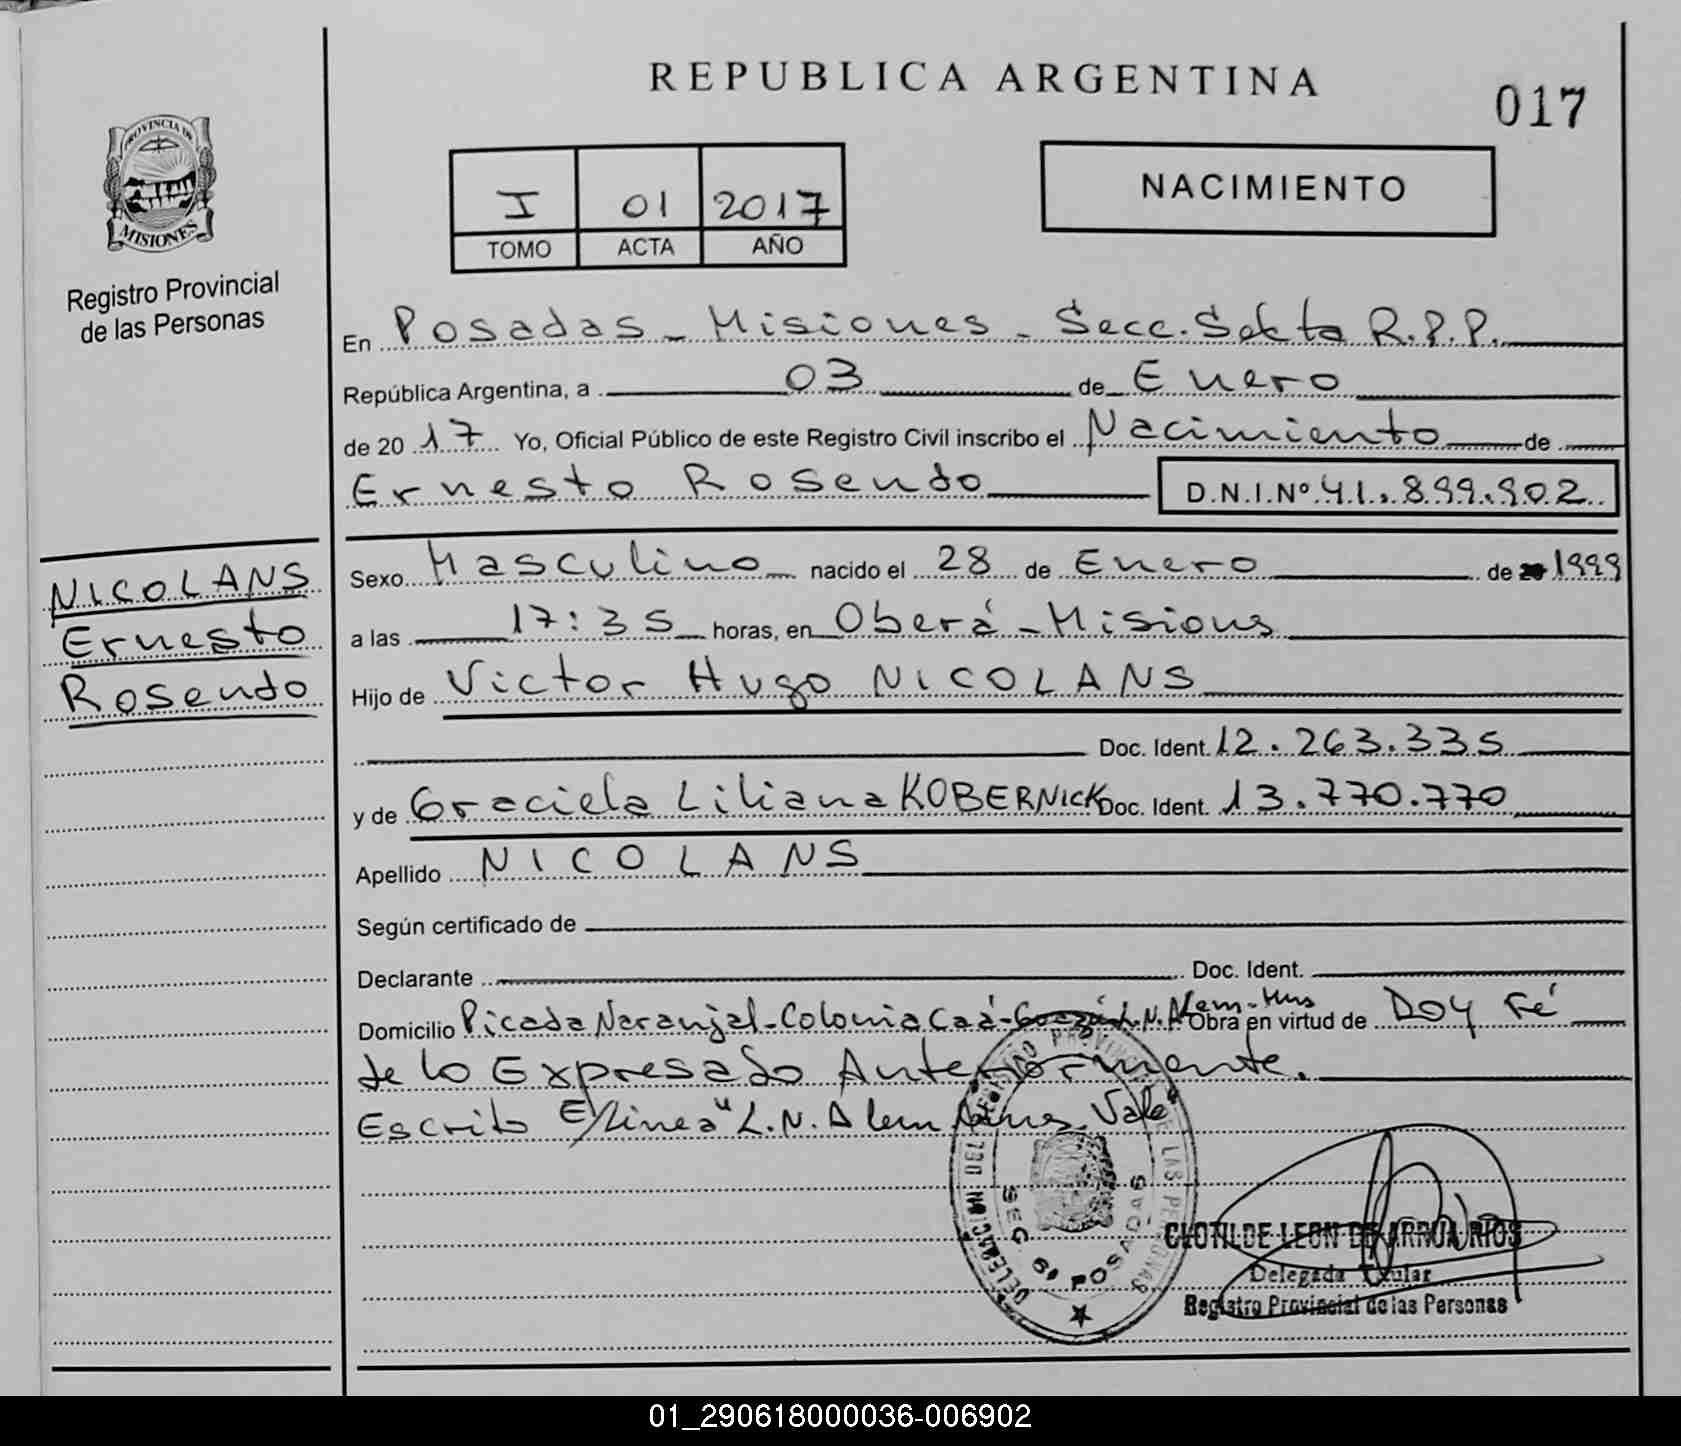 REPUBLICA ARGENTINA
017
PROVINCIA DE
MISIONES
Registro Provincial
de las Personas
I 01 2017
TOMO ACTA AÑO
NACIMIENTO
En Posadas - Misiones - Secc. Sexta R.P.P.
República Argentina, a 03 de Enero
de 20 17 Yo, Oficial Público de este Registro Civil inscribo el Nacimiento de
Ernesto Rosendo D.N.I.Nº 41.899.902
NICOLANS
Ernesto
Rosendo
Sexo Masculino nacido el 28 de Enero de 1999
a las 17:35 horas, en Oberá - Misions
Hijo de Victor Hugo NICOLANS
Doc. Ident. 12.263.335
y de Graciela Liliana KOBERNICK Doc. Ident. 13.770.770
Apellido NICOLANS
Según certificado de
Declarante Doc. Ident.
Domicilio Picada Naranjal - Colonia Caá - L.N. Alem - Mns Obra en virtud de Doy Fé
de lo Expresado Anteriormente.
Escrito E/Linea "L.N. Alem Vale"
DELEGACION DEL REGISTRO PROVINCIAL DE LAS PERSONAS
SEC 6ª POSADAS
CLOTILDE LEON DE ARRUA RIOS
Delegada Titular
Registro Provincial de las Personas
01_290618000036-006902